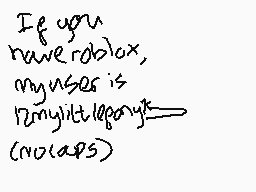 If you
have roblox,
my user is
12mylittlepony*
(no caps)